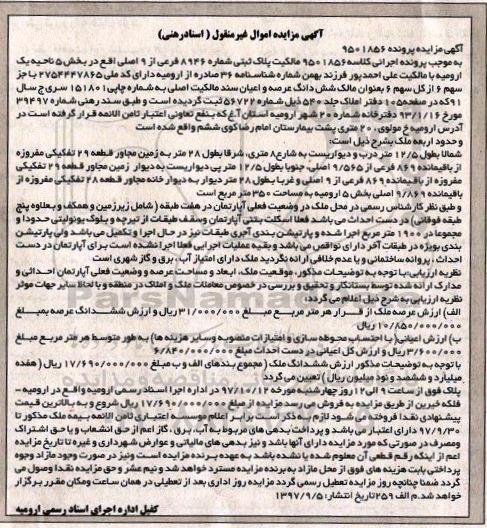 آگهی مزایده اموال غیرمنقول ( اسنادرهنی)
آگهی مزایده پرونده ۹۵۰۱۸۵۶
به موجب پرونده اجرائی کلاسه۹۵۰۱۸۵۶ مالکیت پلاک ثبتی شماره ۸۹۴۶ فرعی از ۹ اصلی واقع در بخش۵ ناحیه یک
ارومیه با مالکیت علی احمدپور فرزند بهمن شماره شناسنامه ۳۶ صادره از ارومیه دارای کد ملی ۲۷۵۴۴۴۷۸۶۵ با جز
سهم ۶ از کل سهم ۶ بعنوان مالک شش دانگ عرصه و اعیان سند مالکیت اصلی به شماره چاپی ۱۵۱۸۰۱ سری ج سال
۹۱ که در صفحه۱۰۵ دفتر املاک جلد ۵۴۰ ذیل شماره ۵۶۷۲۲ ثبت گردیده است و طبق سند رهنی شماره ۳۹۴۹۷
مورخ ۹۳/۱۱/۱۶ دفترخانه شماره ۲۰ شهر ارومیه استان آ.غ که بنفع تعاونی اعتبار ثامن الائمه قرار گرفته است در
آدرس ارومیه خ مولوی، ۲۰ متری پشت بیمارستان امام رضا کوی ششم واقع شده است
وحدود اربعه ملک بشرح ذیل است:
شمالا بطول ۱۲/۵ متر درب و دیواریست به شارع ۸ متری، شرقا بطول ۲۸ متر به زمین مجاور قطعه ۲۹ تفکیکی
از باقیمانده ۸۶۹ فرعی از ۹/۵۶۵ اصلی، جنوبا بطول ۱۲/۵ متر پی دیواریست به دیوار زمین مجاور قطعه ۲۹ تفکیکی
مفروزه از باقیمانده ۸۶۹ فرعی از ۹ اصلی و غربا بطول ۲۸ متر دیوار به دیوار خانه مجاور قطعه ۲۸ تفکیکی مفروزه از
باقیمانده ۹/۸۶۹ اصلی بخش ۵ ارومیه به مساحت ۳۵۰ متر مربع است
و طبق نظر کارشناس رسمی در محل ملک در وضعیت فعلی آپارتمان در هفت طبقه ( شامل زیرزمین و همکف و بعلاوه پنج
طبقه فوقانی) در دست احداث می باشد فعلا اسکلت بتنی آپارتمان وسقف طبقات از تیرچه و بلوک یونولیتی حدودا و
مجموعا در ۱۹۰۰ متر مربع اجرا شده و پارتیشن بندی آجری طبقات نیز در حال اجرا و تکمیل می باشد ولی پارتیشن
بندی بویژه در طبقات آخر دارای نواقص می باشد و بقیه عملیات اجرایی فعلا اجرا نشده است برای آپارتمان در دست
احداث ، پروانه ساختمانی و یا عدم خلافی ارائه نگردید ملک دارای امتیاز آب ، برق و گاز شهری است
نظریه ارزیابی:با توجه به توضیحات مذکور، موقعیت ملک، ابعاد و مساحت عرصه و وضعیت فعلی آپارتمان احداثی و
مدارک ارائه شده توسط بستانکار و تحقیق و بررسی در خصوص معاملات ملک و املاک در منطقه و با لحاظ سایر جهات موثر
نظریه ارزیابی به شرح ذیل اعلام می گردد:
الف) ارزش عرصه ملک از قــرار هــر متر مــربــع مبـلغ ۳۱/۰۰۰/۰۰۰ ریال و ارزش ششــدانگ عرصه بمبلغ
۱۰/۸۵۰/۰۰۰/۰۰۰ ریال
ب) ارزش اعیانی( با احتساب محوطه سازی و امتیازات منصوبه و سایر هزینه ها) به طور متوسط هر متر مربع مبلغ
۳/۶۰۰/۰۰۰ ریال و ارزش کل اعیانی در دست احداث مبلغ ۶/۸۴۰/۰۰۰/۰۰۰
با توجه به توضیحات مذکور ارزش ششدانگ ملک ( مجموع بندهای الف و ب مبلغ ۱۷/۶۹۰/۰۰۰/۰۰۰ ریال ( هفده
میلیارد و ششصد و نود میلیون ریال) تعیین می گردد
پلاک فوق از ساعت ۹ الی ۱۲ روز چهارشنبه مورخه ۹۷/۱۰/۱۲ در اداره اجرا اسناد رسمی ارومیه واقع در ارومیه –
فلکه خیرین از طریق مزایده به فروش می رسد مزایده از مبلغ ۱۷/۶۹۰/۰۰۰/۰۰۰ ریال شروع و به بالاترین قیمت
پیشنهادی نقدا فروخته می شود لازم به ذکر است برابر اعلام موسسه اعتباری ثامن الائمه بیمه ملک مذکور تا
۹۷/۹/۳۰ دارای اعتبار می باشد و پرداخت بدهی های مربوط به آب، برق ، گاز اعم از حق انشعاب و یا حق اشتراک
ومصرف در صورتی که مورد مزایده دارای آنها باشد و نیز بدهی های مالیاتی و عوارض شهرداری و غیره تا تاریخ مزایده
اعم از اینکه رقم قطعی آن معلوم شده یا نشده باشد به عهده برنده مزایده است ونیز در صورت وجود مازاد وجوه
پرداختی بابت هزینه های فوق از محل مازاد به برنده مزایده مسترد خواهد شد و نیم عشر و حق مزایده نقدا وصول می
گردد ضمنا چنانچه روز مزایده تعطیل رسمی گردد مزایده روز اداری بعد از تعطیلی در همان ساعت ومکان مقرر برگزار
خواهد شد.م الف ۲۵۹ تاریخ انتشار: ۱۳۹۷/۹/۵
کفیل اداره اجرای اسناد رسمی ارومیه